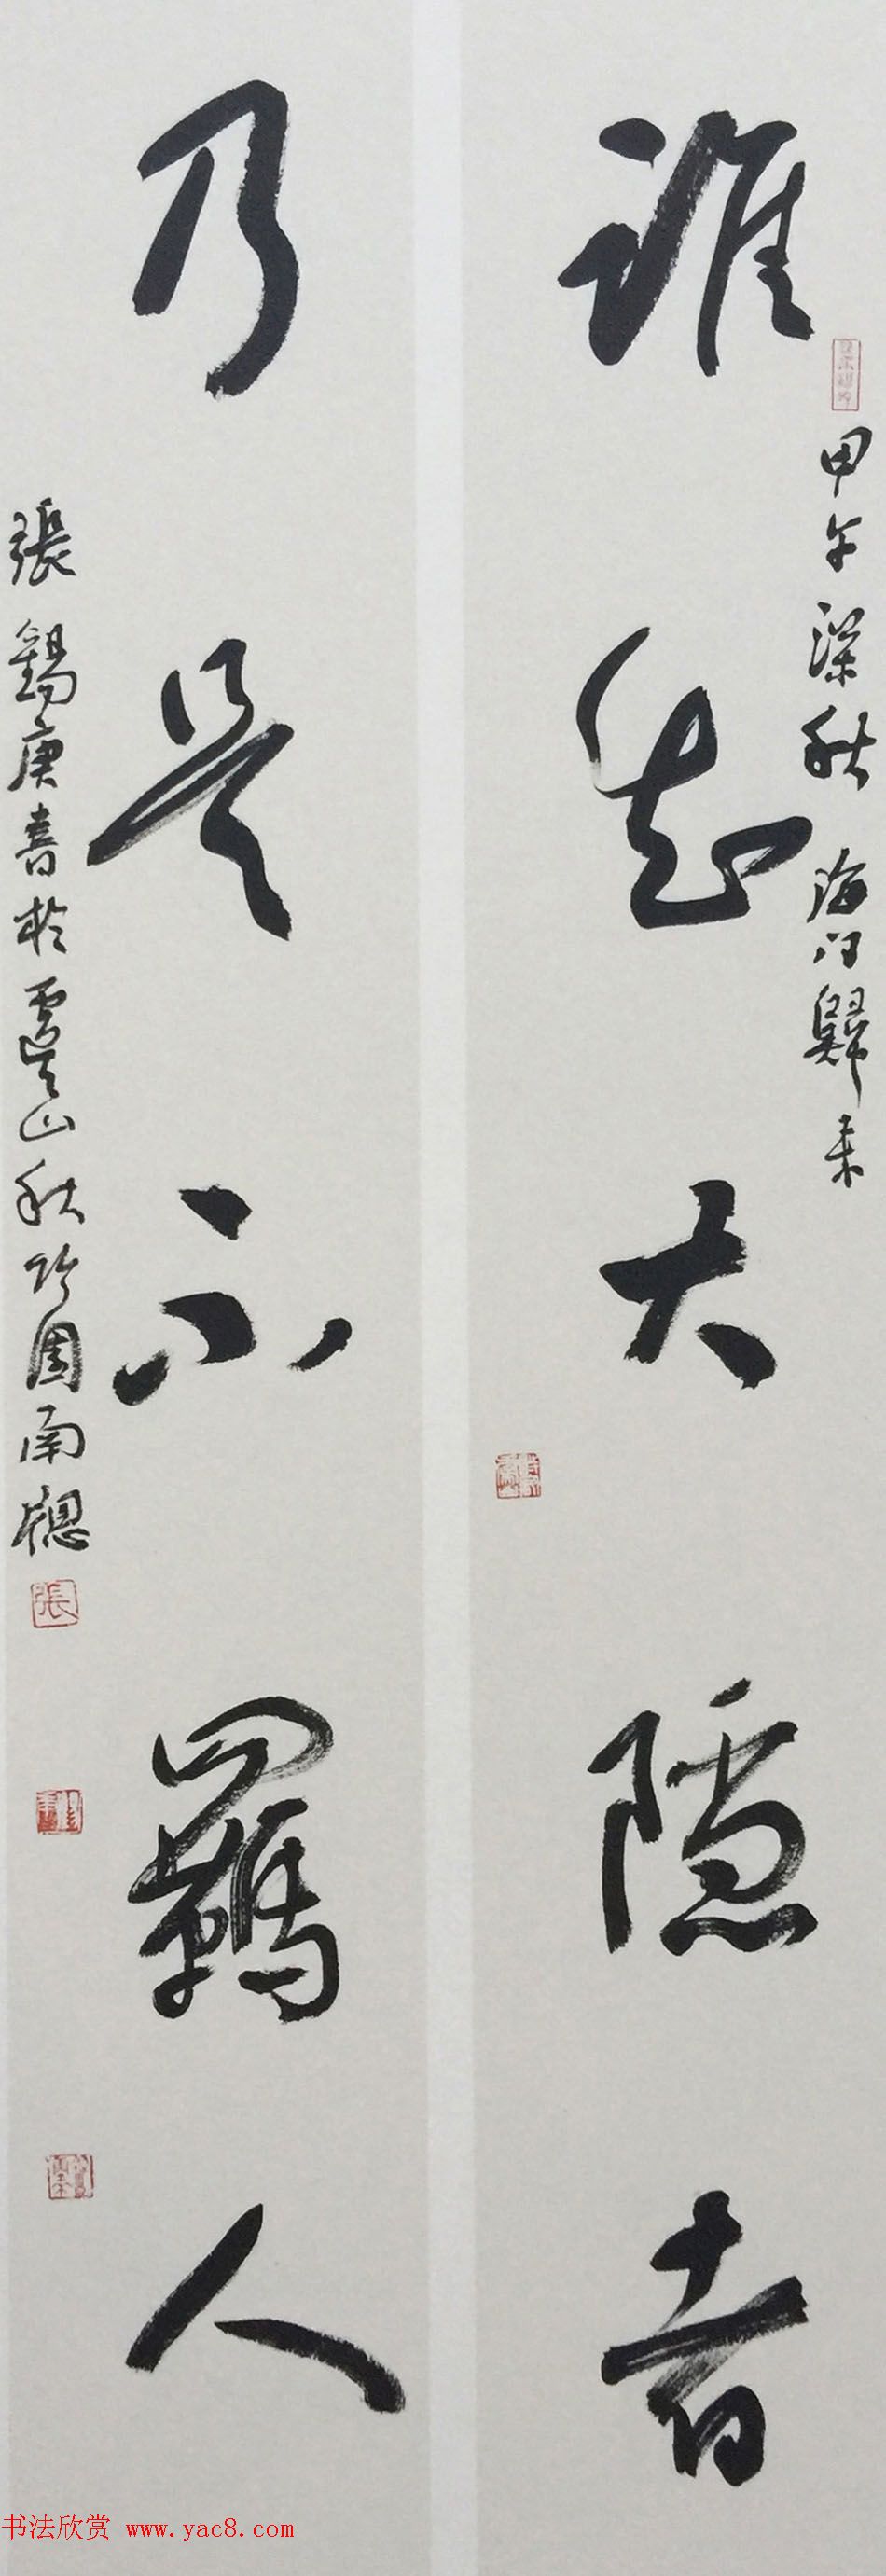 誰知大隱者
甲午深秋 海門歸来
乃是不羈人
張錫庚書於虞山秋吟園南窗
張
书法欣赏 www.yac8.com